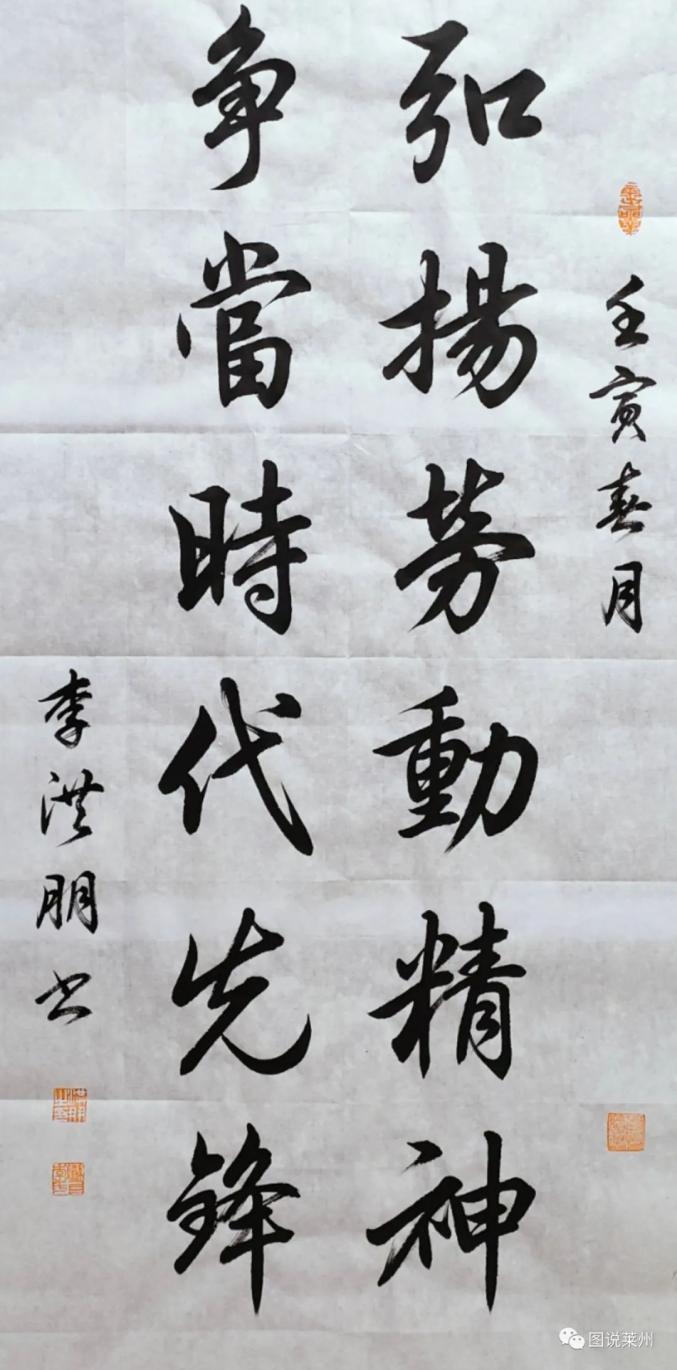 壬寅春月
弘揚劳動精神
争當時代先锋
李洪朋书
图说莱州